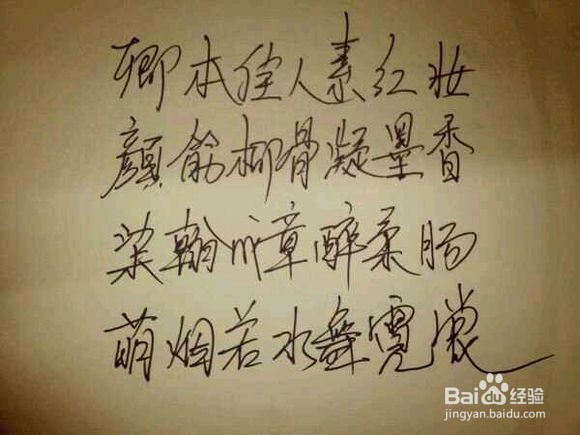 卿本佳人素红妆
颜筋柳骨凝墨香
染翰成章醉柔肠
萌烟若水舞霓裳
Baidu经验
jingyan.baidu.com